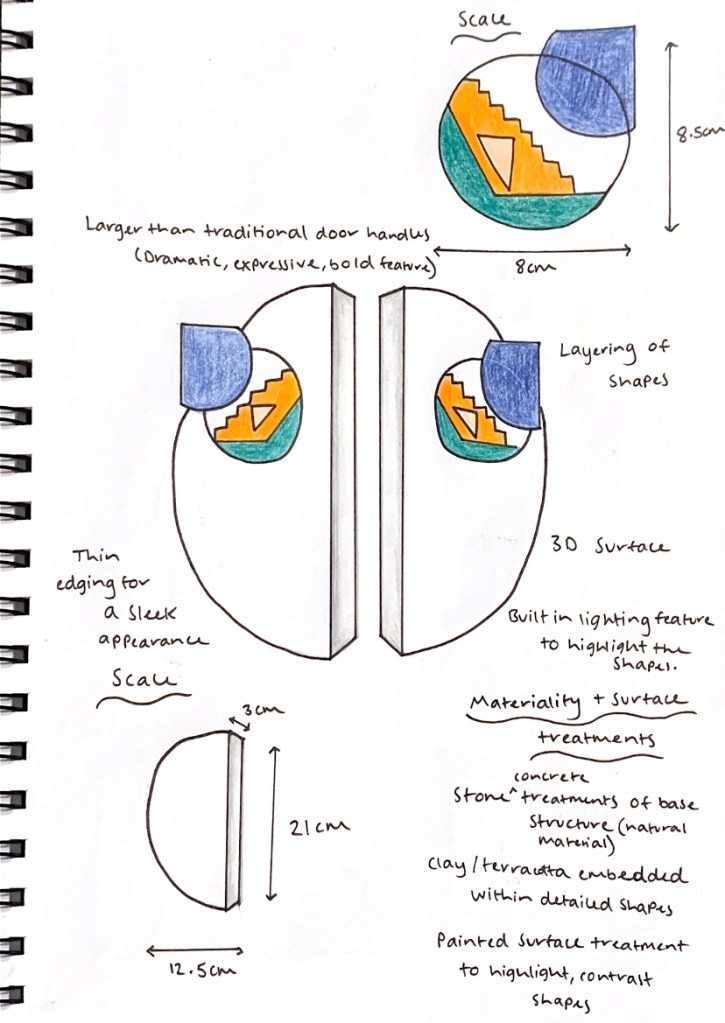 Scale
8.5cm
8cm
Larger than traditional door handles
(Dramatic, expressive, bold feature)
Layering of
shapes
3D Surface
Thin
edging for
a sleek
appearance
Built in lighting feature
to highlight the
shapes.
Scale
3cm
21cm
12.5cm
Materiality + Surface
treatments
concrete
Stone ^ treatments of base
structure (natural
material)
Clay / terracotta embedded
within detailed shapes
Painted surface treatment
to highlight, contrast
shapes